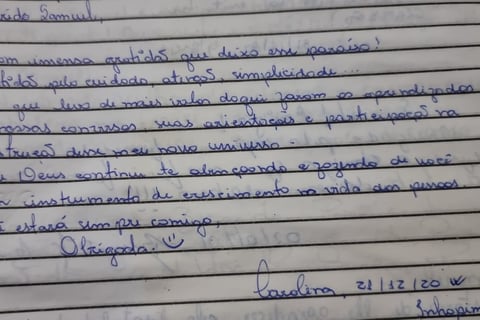 rido Samuel,
om imensa gratidão que deixo esse paraíso!
tidão pelo cuidado, atenção, simplicidade...
que levo de mais valor daqui foram os aprendizados
nossas conversas, suas orientações e participação na
strução desse meu novo universo.
Deus continue te abençoando e fazendo de você
instrumento de crescimento na vida das pessoas.
estará sempre comigo,
Obrigada. :)
Carolina, 21/12/20
Inhapim